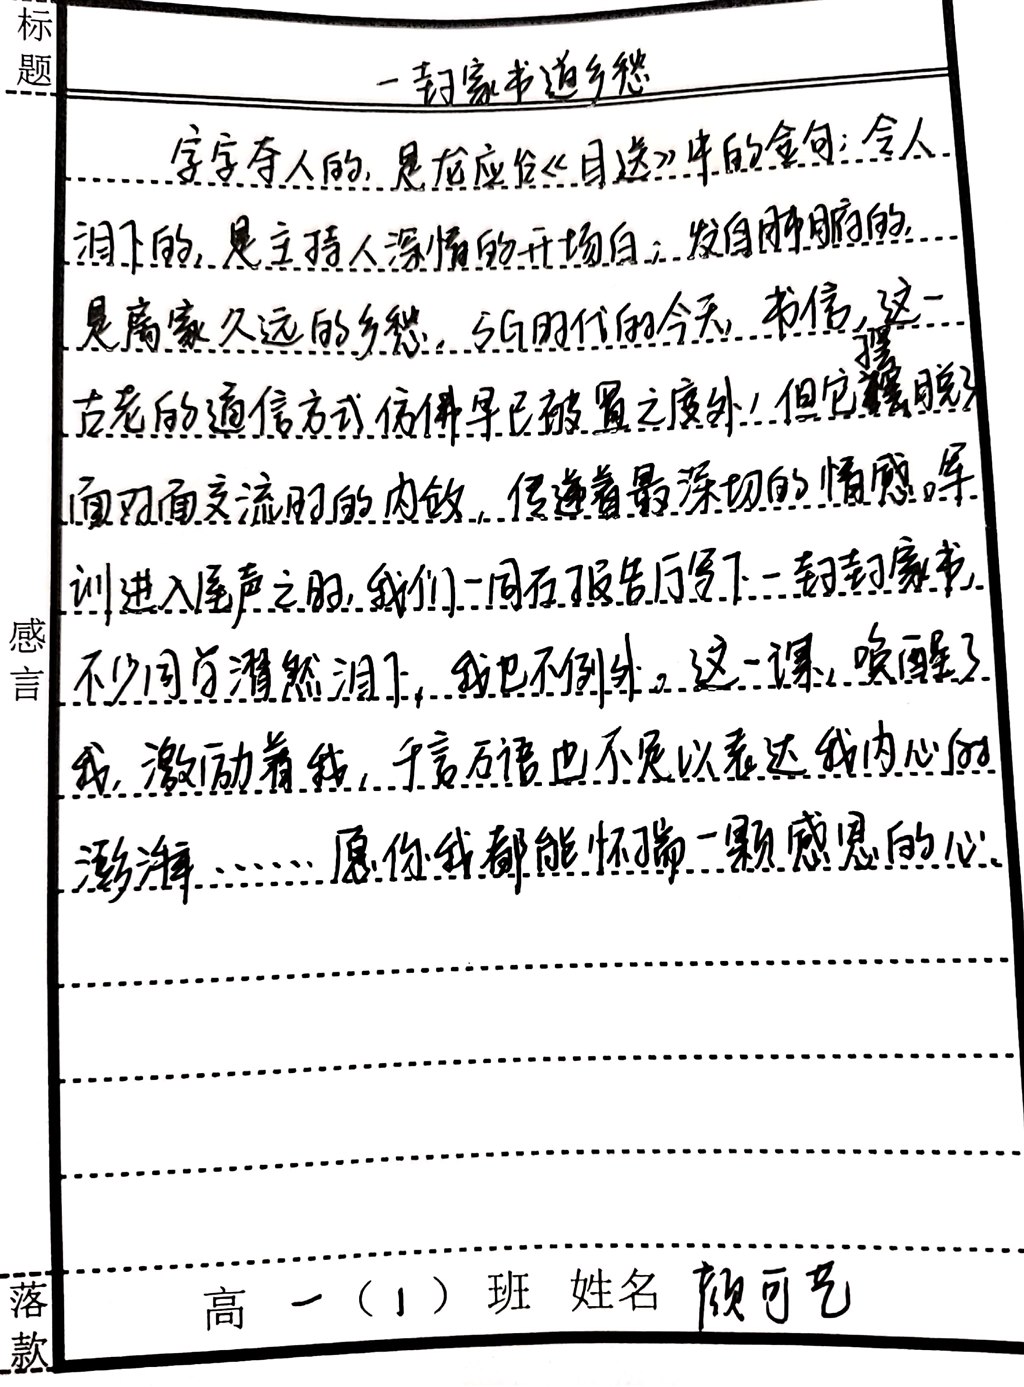 标题
一封家书道乡愁
字字夺人的，是龙应台《目送》中的金句；令人
泪下的，是主持人深情的开场白；发自肺腑的，
是离家久远的乡愁。5G时代的今天，书信，这一
古老的通信方式仿佛早已被置之度外，但它摆脱了
面对面交流时的内敛，传递着最深切的情感。军
训进入尾声之时，我们一同在报告厅写下一封封家书，
不少同学潸然泪下，我也不例外。这一课，唤醒了
我，激励着我，千言万语也不足以表达我内心的
澎湃……愿你我都能怀揣一颗感恩的心。
感言
落款
高一（1）班 姓名 颜可艺